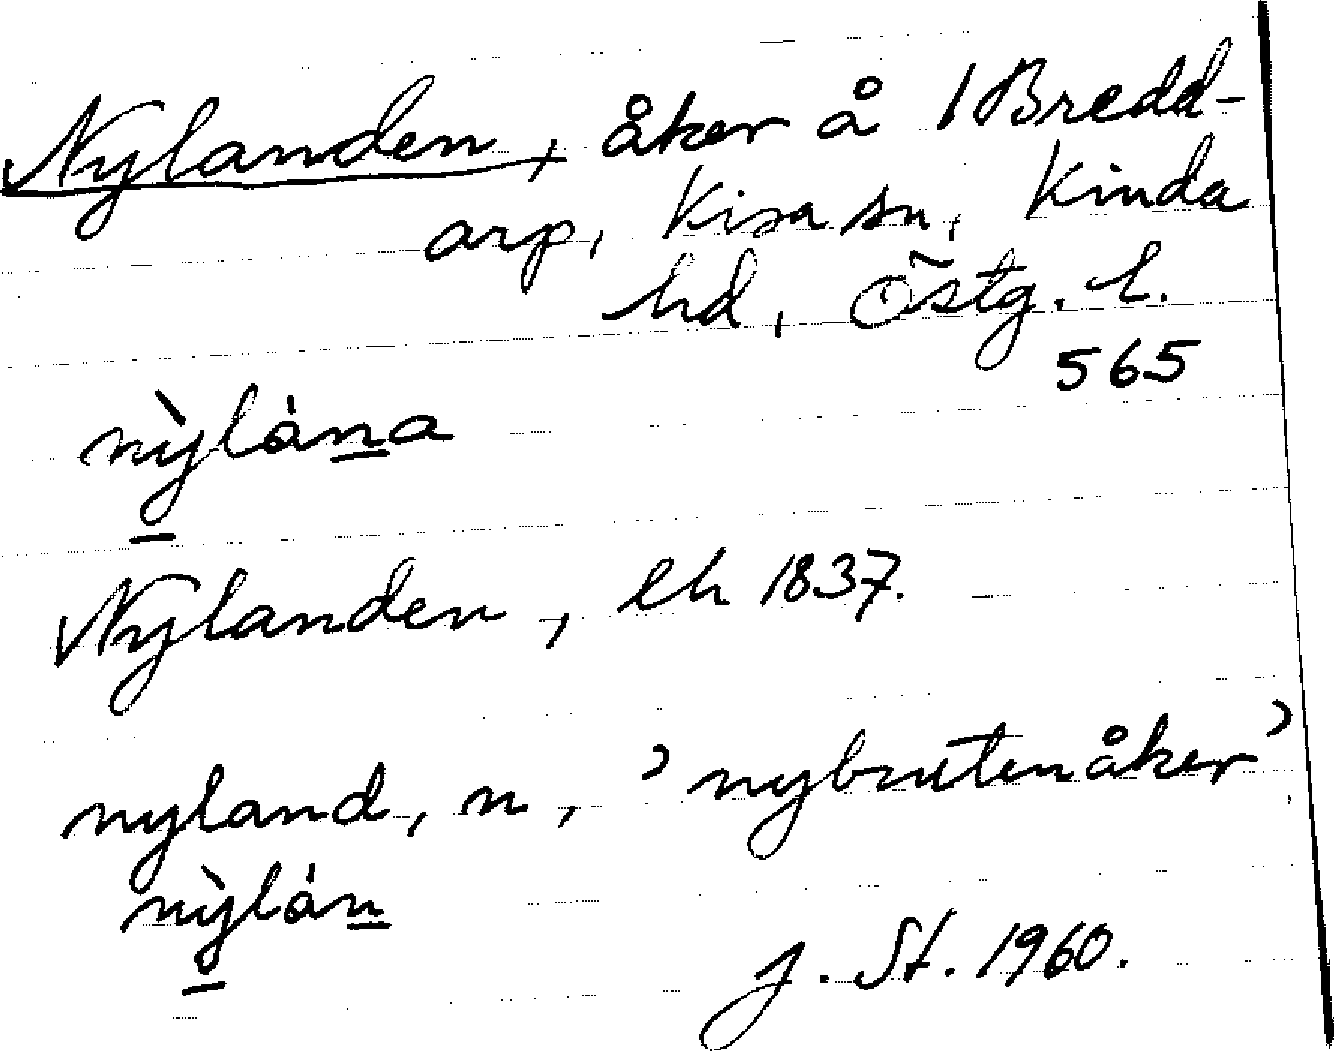 Nylanden, åker å 1 Bredd-
arp, Kisa sn, Kinda
hd, Östg. l.
565
nỳlȧna
Nylanden, lh 1837.
nyland, n, ’nybrutenåker’
nỳlȧn
J. St. 1960.